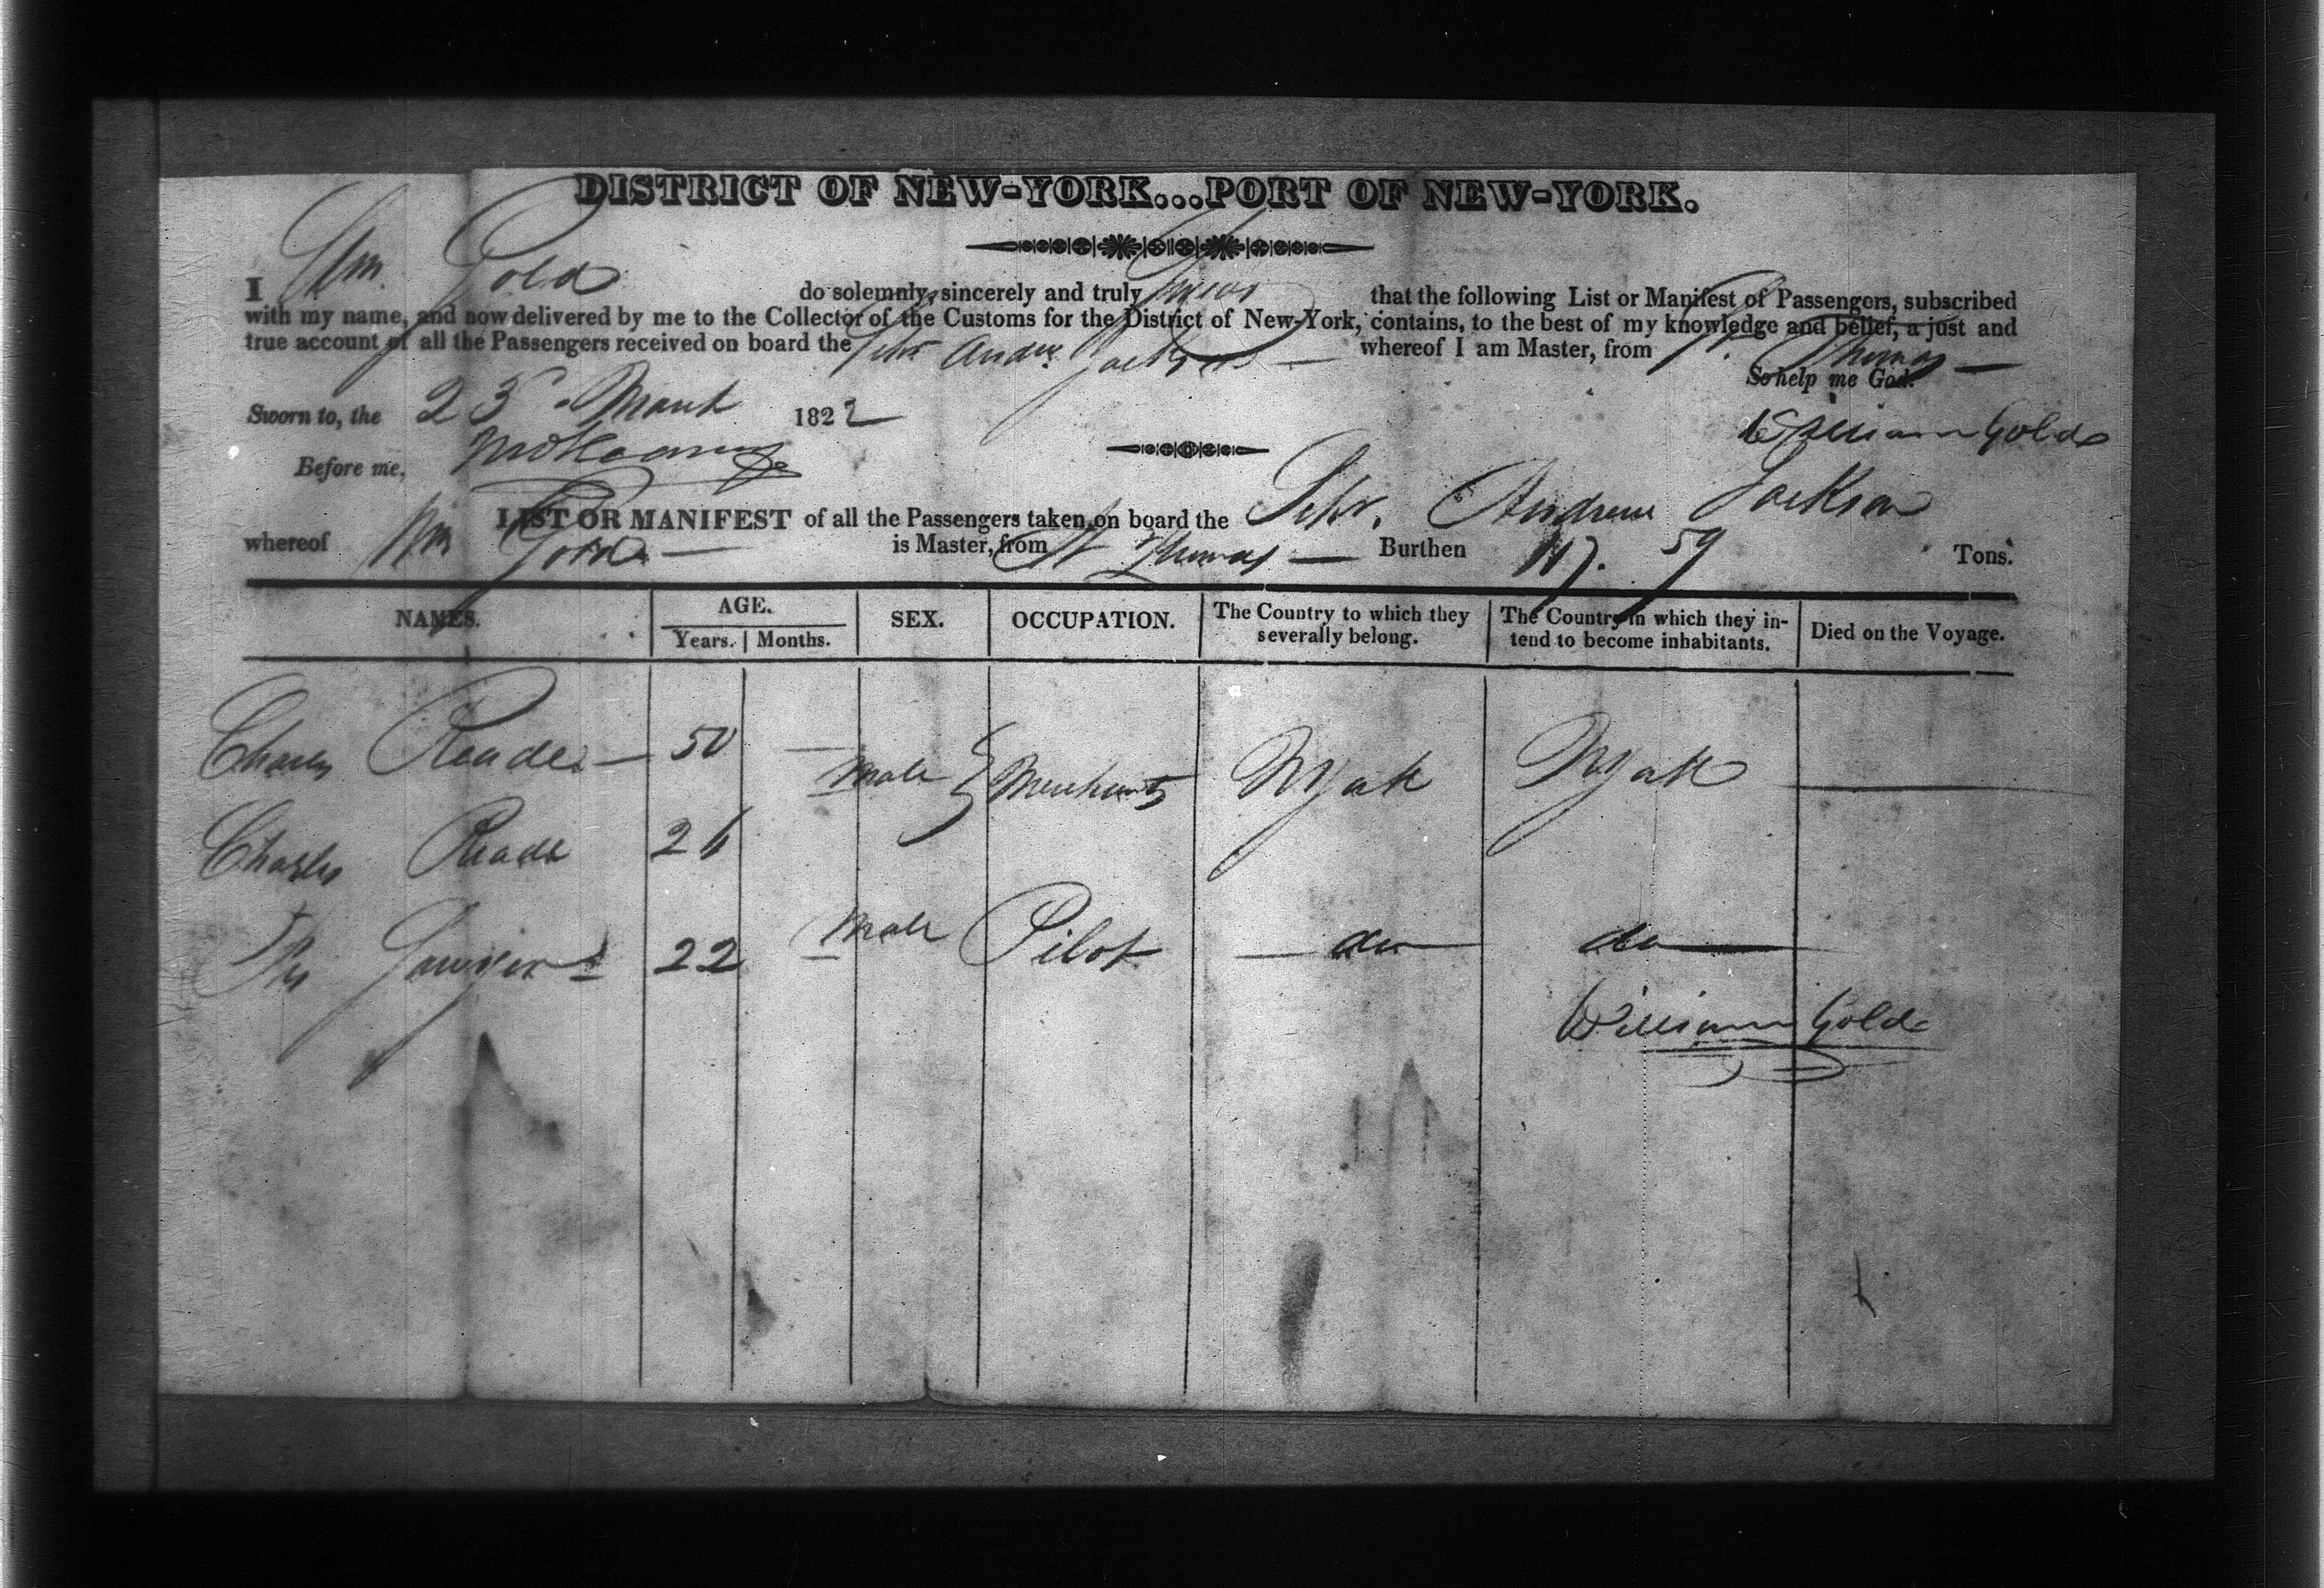 DISTRICT OF NEW-YORK...PORT OF NEW-YORK.
I Wm. Gold do solemnly, sincerely and truly swear that the following List or Manifest of Passengers, subscribed
with my name, and now delivered by me to the Collector of the Customs for the District of New-York, contains, to the best of my knowledge and belief, a just and
true account of all the Passengers received on board the Schr Andw. Jackson whereof I am Master, from St. Thomas
So help me God.
Sworn to, the 23d March 1822
William Golde
Before me,
LIST OR MANIFEST of all the Passengers taken on board the Schr. Andrew Jackson
whereof Wm Golde is Master, from St Thomas Burthen 117. 59 Tons.
NAMES. AGE. SEX. OCCUPATION. The Country to which they severally belong. The Country in which they intend to become inhabitants. Died on the Voyage.
Years. Months.
Charles Reade 50 Male Merchants NYork NYork
Charles Reade 26
22 Male Pilot do do
William Golde